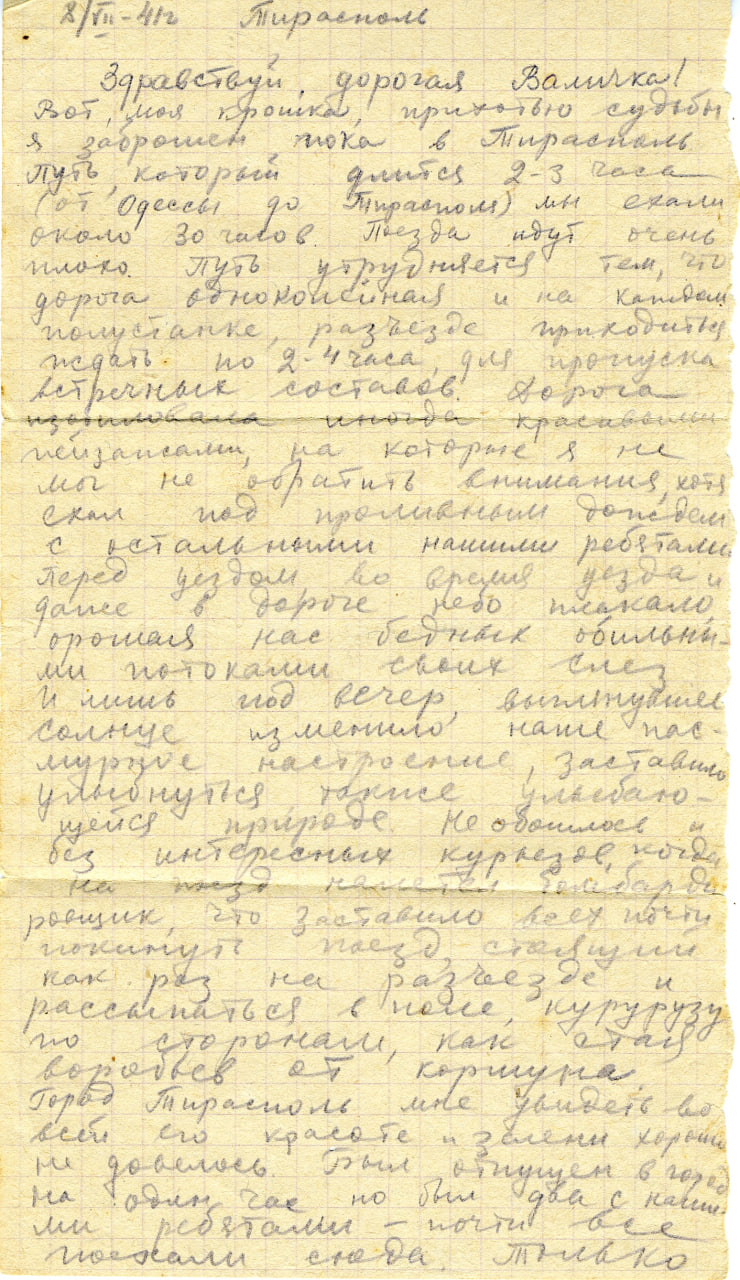 8/VII-41г Тирасполь
Здравствуй, дорогая Валичка!
Вот, моя крошка, прихотью судьбы
я заброшен пока в Тирасполь
Путь, который длится 2-3 часа
(от Одессы до Тирасполя) мы ехали
около 30 часов. Поезда идут очень
плохо. Путь утрудняется тем, что
дорога одноколейная и на каждом
полустанке, разъезде приходиться
ждать по 2-4 часа, для пропуска
встречных составов. Дорога
изобиловала иногда красивыми
пейзажами, на которые я не
мог не обратить внимания, хотя
ехал под проливным дождем
с остальными нашими ребятами
Перед уездом во время уезда и
даже в дороге небо плакало,
орошая нас бедных обильны-
ми потоками своих слез
И лишь под вечер, выглянувшее
солнце изменило наше пас-
мурное настроение, заставило
улыбнуться также улыбаю-
щейся природе. Не обошлось и
без интересных курьезов, когда
на поезд налетел бомбарди
ровщик, что заставило всех почти
покинуть поезд, стоящий
как раз на разъезде и
рассыпаться в поле, кукурузу
по сторонам, как стая
воробьев от коршуна.
Город Тирасполь мне увидеть во
всей его красоте и зелени хорошо
не довелось. Был отпущен в город
на один час но был два с наши-
ми ребятами - почти все
поехали сюда. Только